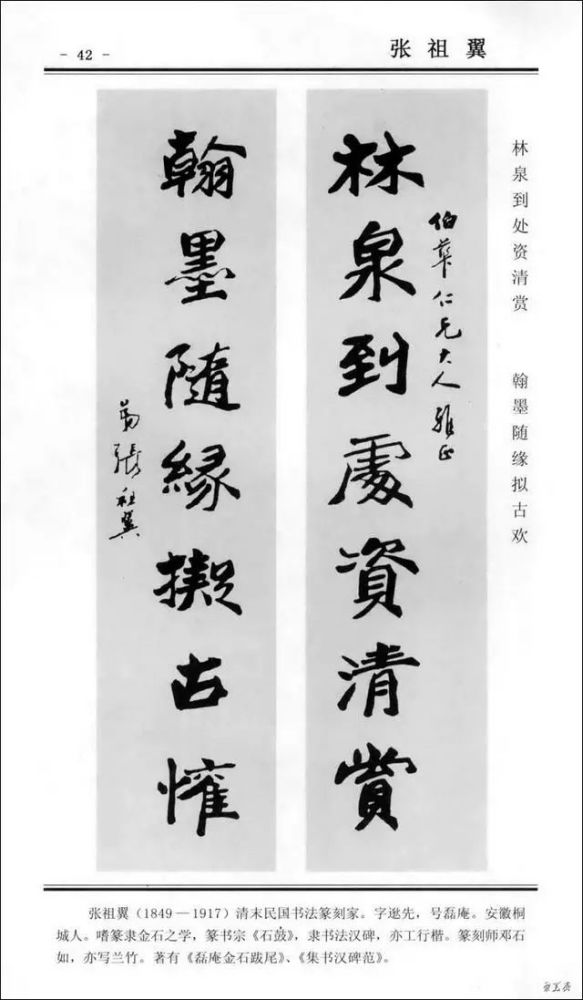 - 42 -
张祖翼
林泉到处资清赏
翰墨随缘拟古欢
伯華仁兄大人雅正
林泉到處資清賞
翰墨隨緣擬古懽
弟張祖翼
张祖翼（1849—1917）清末民国书法篆刻家。字逖先，号磊庵。安徽桐
城人。嗜篆隶金石之学，篆书宗《石鼓》，隶书法汉碑，亦工行楷。篆刻师邓石
如，亦写兰竹。著有《磊庵金石跋尾》、《集书汉碑范》。